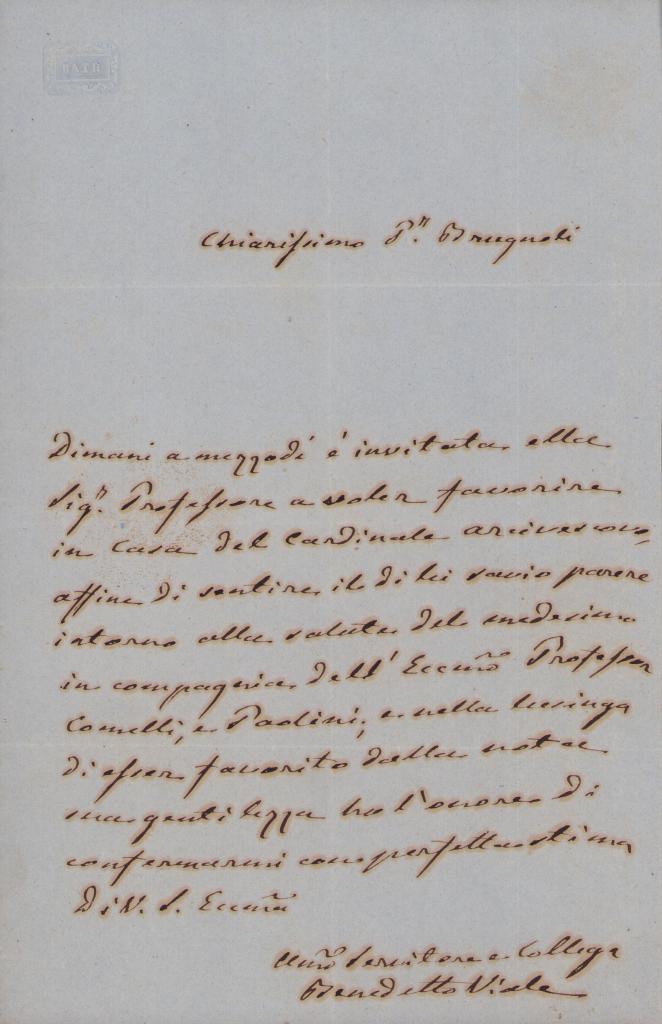 BATH
Chiarissimo P.r Brugnoli
Dimani a mezzodì è invitata ella
Sig.r Professore a voler favorire
in casa del Cardinale arcivescovo,
affine di sentire il di lei savio parere
intorno alla salute del medesimo
in compagnia dell' Eccmo Professor
Comelli, e Paolini, e nella lusinga
di esser favorito dalla nota
sua gentilezza ho l'onore di
confermarmi con perfetta stima
Di V. S. Eccma
Servitore e Collega
Benedetto Viale